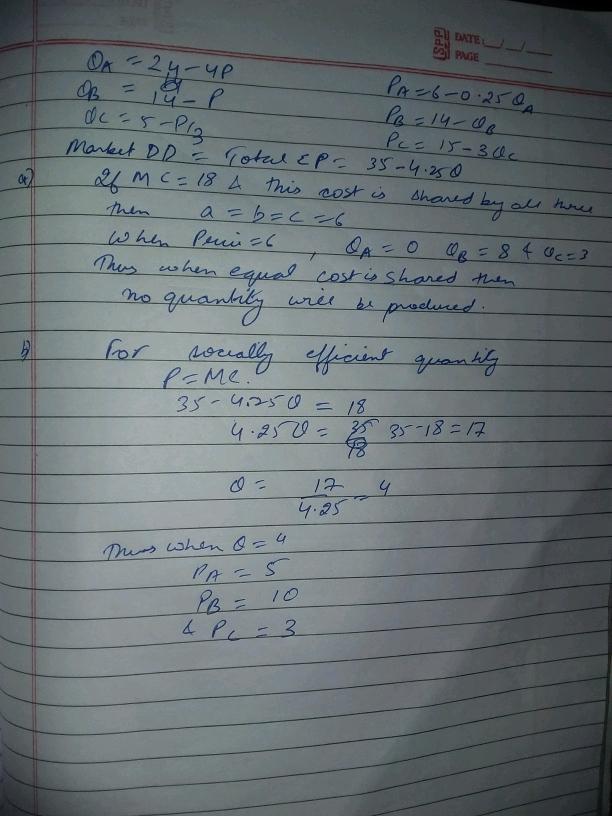 SPP DATE: __/__/__
PAGE
QA = 24 - 4P
PA = 6 - 0.25QA
QB = 14 - P
PB = 14 - QB
QC = 5 - P/3
PC = 15 - 3QC
Market DD = Total ΣP = 35 - 4.25Q
a) If MC = 18 & this cost is shared by all three
then a = b = c = 6
When Price = 6, QA = 0 QB = 8 & QC = 3
Thus when equal cost is shared then
no quantity will be produced.
b) For socially efficient quantity
P = MC.
35 - 4.25Q = 18
4.25Q = 35 - 18 = 17
Q = 17/4.25 = 4
Thus when Q = 4
PA = 5
PB = 10
& PC = 3